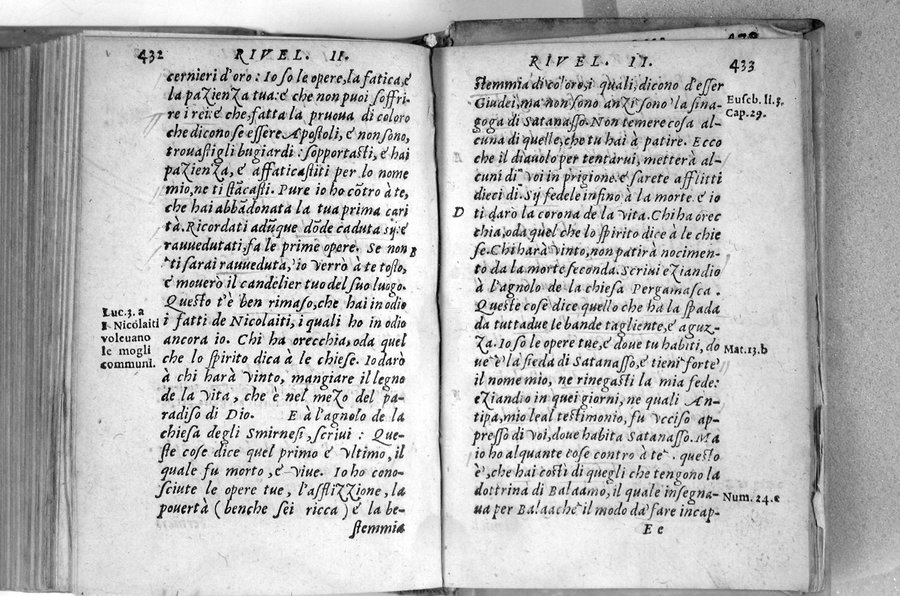 432 RIVEL. II.
cernieri d'oro: Io so le opere, la fatica, e
la pazienza tua: e che non puoi soffri-
re i rei: e che, fatta la pruoua di coloro
che dicono se essere Apostoli, e non sono,
trouastigli bugiardi: sopportasti, e hai
pazienza, e affaticastiti per lo nome
mio, ne ti stãcasti. Pure io ho cõtro à te,
che hai abbãdonata la tua prima cari
tà. Ricordati adũque dõde caduta sij: e
rauuedutati, fa le prime opere. Se non B
ti sarai rauueduta, io verrò à te tosto,
e mouerò il candelier tuo del suo luogo.
Questo t'è ben rimaso, che hai in odio
i fatti de Nicolaiti, i quali ho in odio
ancora io. Chi ha orecchia, oda quel
che lo spirito dica à le chiese. Io darò
à chi harà vinto, mangiare il legno
de la vita, che è nel mezo del pa-
radiso di Dio. E à l'agnolo de la
chiesa degli Smirnesi, scriui: Que-
ste cose dice quel primo e vltimo, il
quale fu morto, e viue. Io ho cono-
sciute le opere tue, l'afflizzione, la
pouertà (benche sei ricca) e la be-
stemmia
Luc.3. a
I Nicolaiti
voleuano
le mogli
communi.
RIVEL. II. 433
stemmia di coloro, i quali, dicono d'esser
Giudei, ma non sono anzi sono la sina-
goga di Satanasso. Non temere cosa al-
cuna di quelle, che tu hai à patire. Ecco
che il diauolo per tentarui, metterà al-
cuni di voi in prigione: e sarete afflitti
dieci di. Sij fedele infino à la morte. e io
D ti darò la corona de la vita. Chi ha orec
chia, oda quel che lo spirito dice à le chie
se. Chi harà vinto, non patirà nocimen-
to da la morte seconda. Scriui eziandio
à l'agnolo de la chiesa Pergamasca.
Queste cose dice quello che ha la spada
da tuttadue le bande tagliente, e aguz-
za. Io so le opere tue, e doue tu habiti, do
ue è la sieda di Satanasso, e tieni forte
il nome mio, ne rinegasti la mia fede:
eziandio in quei giorni, ne quali An-
tipa, mio leal testimonio, fu vcciso ap-
presso di voi, doue habita Satanasso. Ma
io ho alquante cose contro à te. questo
è, che hai costì di quegli che tengono la
dottrina di Balaamo, il quale insegna-
ua per Balaache il modo da fare incap-
E e
Euseb. li.3.
Cap.29.
Mat.13.b
Num. 24.c